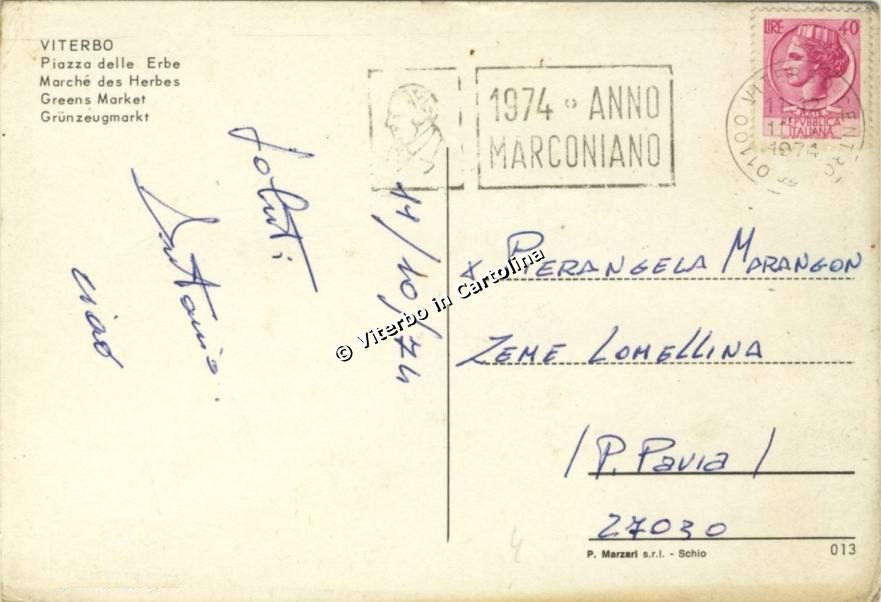 VITERBO
Piazza delle Erbe
Marché des Herbes
Greens Market
Grünzeugmarkt
1974 ANNO
MARCONIANO
LIRE 40
REPVBBLICA
ITALIANA
01100 VITERBO CENTRO
1974
Saluti
Antonio
ciao
11/10/74
© Viterbo in Cartolina
x PIERANGELA MARANGON
ZEME LOMELLINA
(P. Pavia)
27030
4
P. Marzari s.r.l. - Schio
013